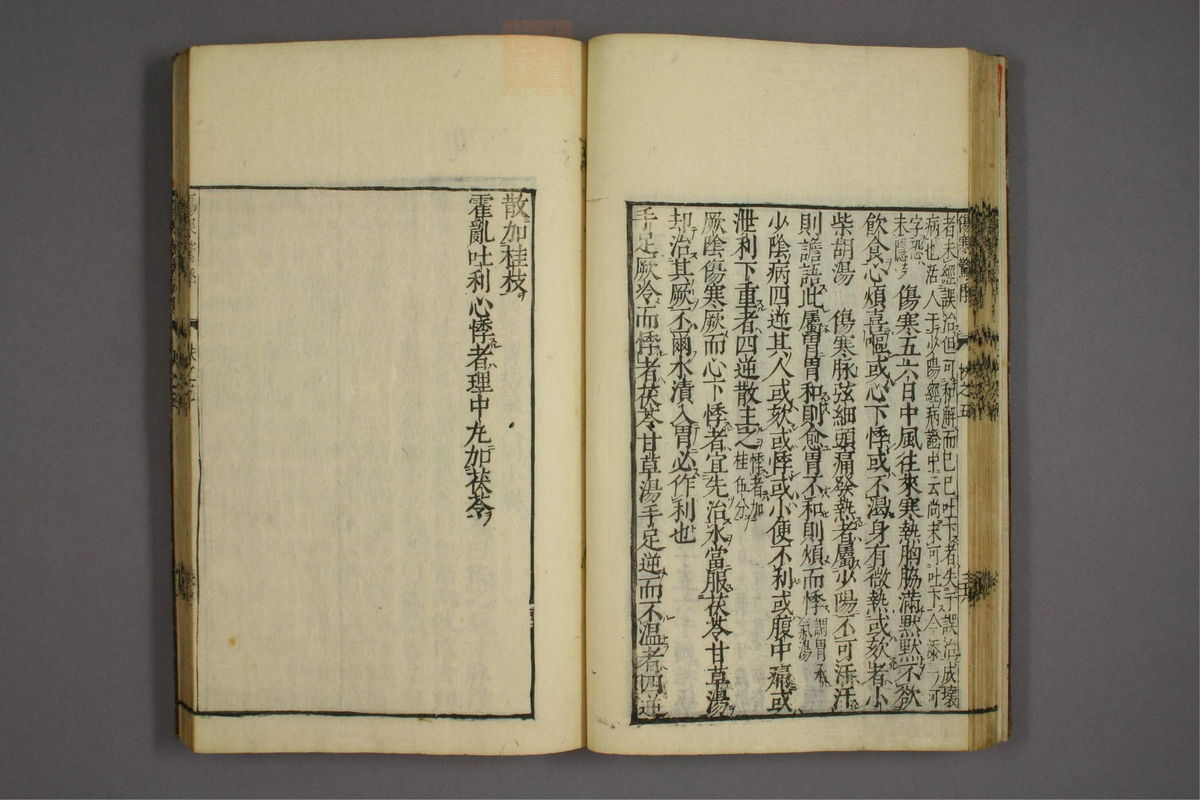 者未經誤治但可和解而已已吐下者失于誤治成壞
病也活人于少陽經病證中云尚未可吐下今添一可
字恐
未隱
傷寒五六日中風往來寒熱胸脇滿默默不欲
飲食心煩喜嘔或心下悸或不渴身有微熱或欬者小
柴胡湯 傷寒脉弦細頭痛發熱者屬少陽不可汗汗
則譫語此屬胃胃和則愈胃不和則煩而悸 調胃承
氣湯
少陰病四逆其人或欬或悸或小便不利或腹中痛或
泄利下重者四逆散主之 悸者加
桂五分
厥陰傷寒厥而心下悸者宜先治水當服茯苓甘草湯
却治其厥不爾水漬入胃必作利也
手足厥冷而悸者茯苓甘草湯手足逆而不溫者四逆
散加桂枝
霍亂吐利心悸者理中丸加茯苓